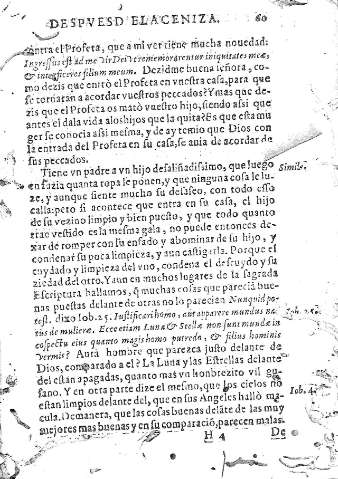 DESPVESD ELACENIZA. 60
Antra el Profeta, que a mi ver tiene mucha nouedad:
Ingressus est ad me vir Dei vt rememorarentur iniquitates meæ,
& interficeres filium meum. Dezidme buena señora, co-
mo dezis que entrò el Profeta en vuestra casa, para que
se tornaran a acordar vuestros peccados? Y mas que de-
zis que el Profeta os matò vuestro hijo, siendo assi que
antes el dala vida alos hijos que la quita? Es que esta mu
ger se conocia assi mesma, y de ay temio que Dios con
la entrada del Profeta en su casa, se auia de acordar de
sus peccados.
Tiene vn padre a vn hijo desaliñadissimo, que luego
ensuzia quanta ropa le ponen, y que ninguna cosa le lu-
ze, y aunque siente mucho su desaseo, con todo esso
calla: pero si acontece que entra en su casa, el hijo
de su vezino limpio y bien puesto, y que todo quanto
trae vestido es la mesma gala, no puede entonces de-
xar de romper con su enfado y abominar de su hijo, y
condenar su poca limpieza, y aun castigarla. Porque el
cuydado y limpieza del vno, condena el descuydo y su
ziedad del otro. Y aun en muchos lugares de la sagrada
Escriptura hallamos, q̃ muchas cosas que parecia bue-
nas puestas delante de otras no lo parecian Nunquid po-
test. dixo Iob. 25. Iustificari homo, aut apparere mundus na-
tus de muliere. Ecce etiam Luna & Stellæ non sunt mundæ in
cospectu eius quanto magis homo putredo, & filius hominis
vermis? Aurà hombre que parezca justo delante de
Dios, comparado a el? La Luna y las Estrellas delante
del estan apagadas, quanto mas vn honbrezito vil gu-
sano. Y en otra parte dize el mesmo, que los cielos no
estan limpios delante del, que en sus Angeles hallò ma-
cula. Demanera, que las cosas buenas delãte de las muy
mejores mas buenas y en su comparació, parecen malas.
H 4 De
Simile.
Iob. 25.
Iob. 4.